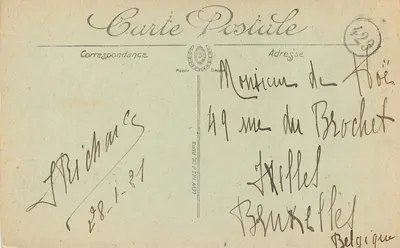 Carte Postale
Correspondance
Adresse
423
Monsieur de Noë
49 rue du Brochet
Ixelles
Bruxelles
Belgique
28-1-21